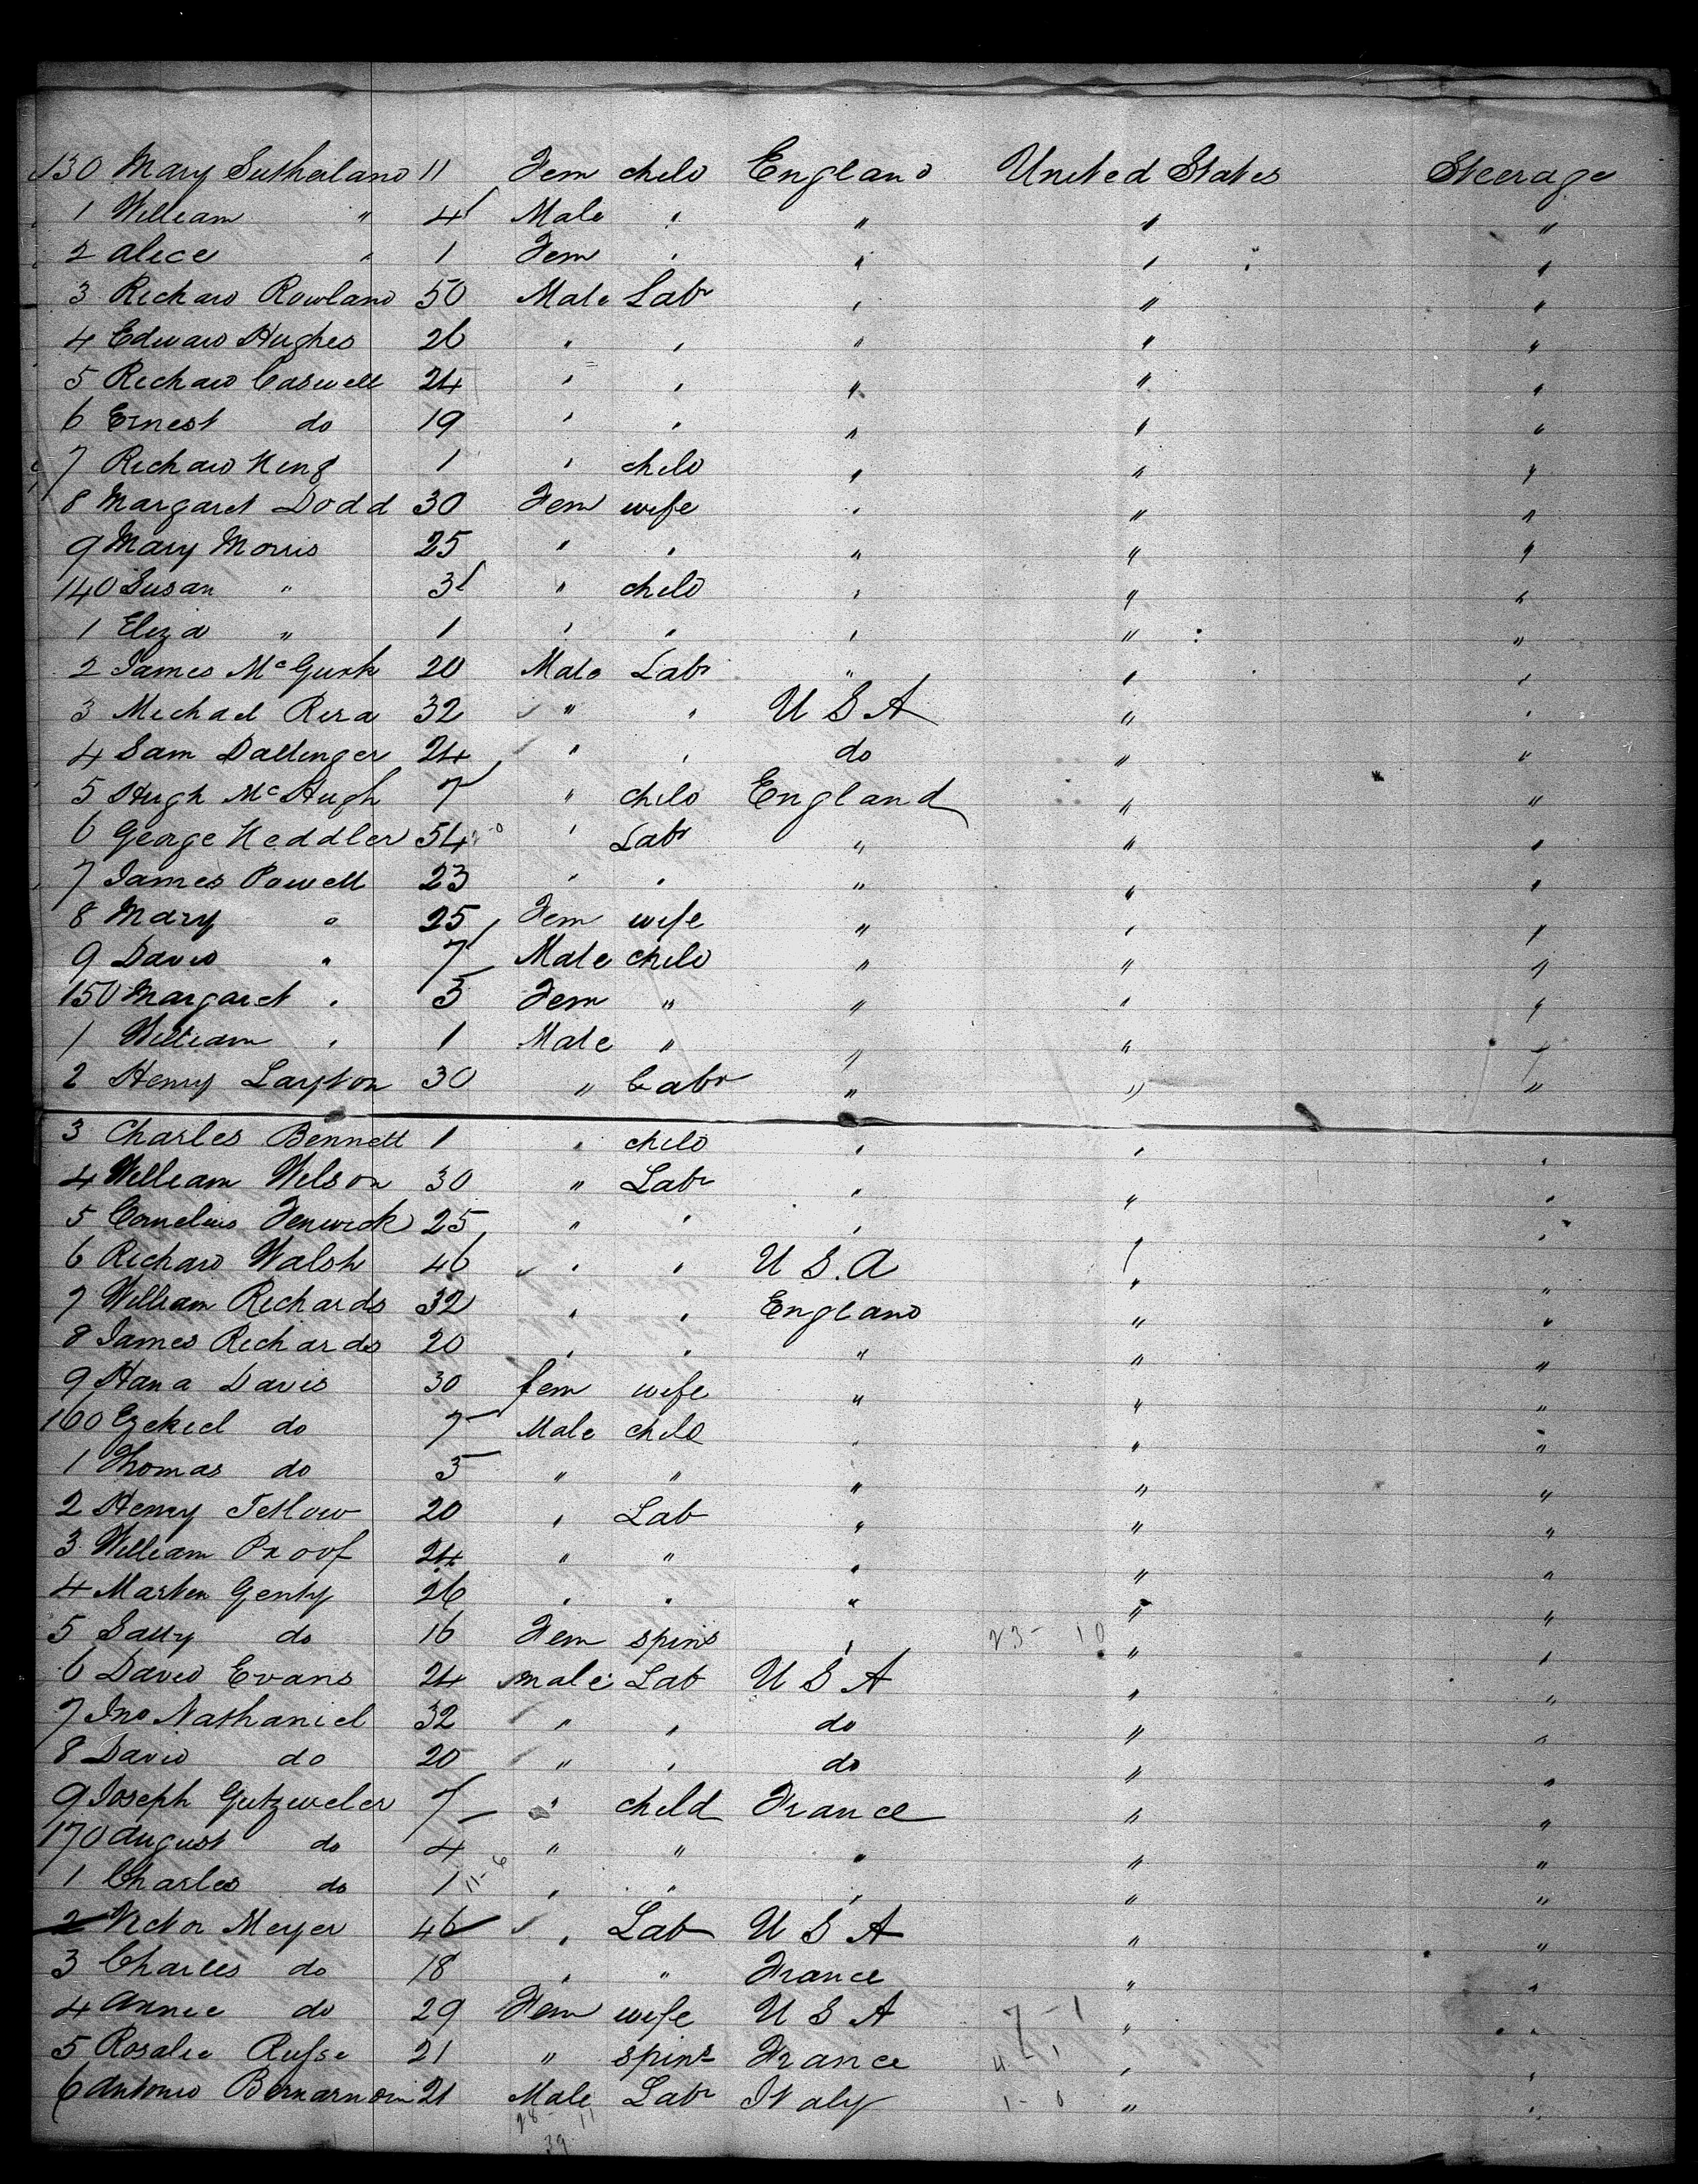 130 Mary Sutherland 11 Fem child England United States Steerage
1 William " 4 Male " " " "
2 Alice " 1 Fem " " " "
3 Richard Rowland 50 Male Labr " " "
4 Edward Hughes 26 " " " " "
5 Richard Caswell 24 " " " " "
6 Ernest do 19 " " " " "
7 Richard King 1 " child " " "
8 Margaret Dodd 30 Fem wife " " "
9 Mary Morris 25 " " " " "
140 Susan " 3 " child " " "
1 Eliza " 1 " " " " "
2 James McGurk 20 Male Labr " " "
3 Michael Rera 32 " " U S A " "
4 Sam Dallinger 24 " " do " "
5 Hugh McHugh 7 " child England " "
6 George Keddler 54 " Labr " " "
7 James Powell 23 " " " " "
8 Mary " 25 Fem wife " " "
9 David " 7 Male child " " "
150 Margaret " 5 Fem " " " "
1 William " 1 Male " " " "
2 Henry Layton 30 " Labr " " "
3 Charles Bennett 1 " child " " "
4 William Wilson 30 " Labr " " "
5 Cornelius Fenwick 25 " " " " "
6 Richard Walsh 46 " " U S. A " "
7 William Richards 32 " " England " "
8 James Richards 20 " " " " "
9 Hana Davis 30 fem wife " " "
160 Ezekiel do 7 Male child " " "
1 Thomas do 5 " " " " "
2 Henry Tetlow 20 " Lab " " "
3 William Proof 24 " " " " "
4 Marten Genty 26 " " " " "
5 Sally do 16 Fem spins " 23 - 10 " "
6 David Evans 24 male Lab U S A " "
7 Jno Nathaniel 32 " " do " "
8 David do 20 " " do " "
9 Joseph Gutzweler 7 " child France " "
170 August do 4 " " " " "
1 Charles do 1 11-6 " " " " "
2 Victor Meyer 46 " Lab U S A " "
3 Charles do 18 " " France " "
4 Annie do 29 Fem wife U S A 7-1 " "
5 Rosalie Rufse 21 " spins France " "
6 Antonio 21 Male Labr Italy 1-0 " "
28-11
39